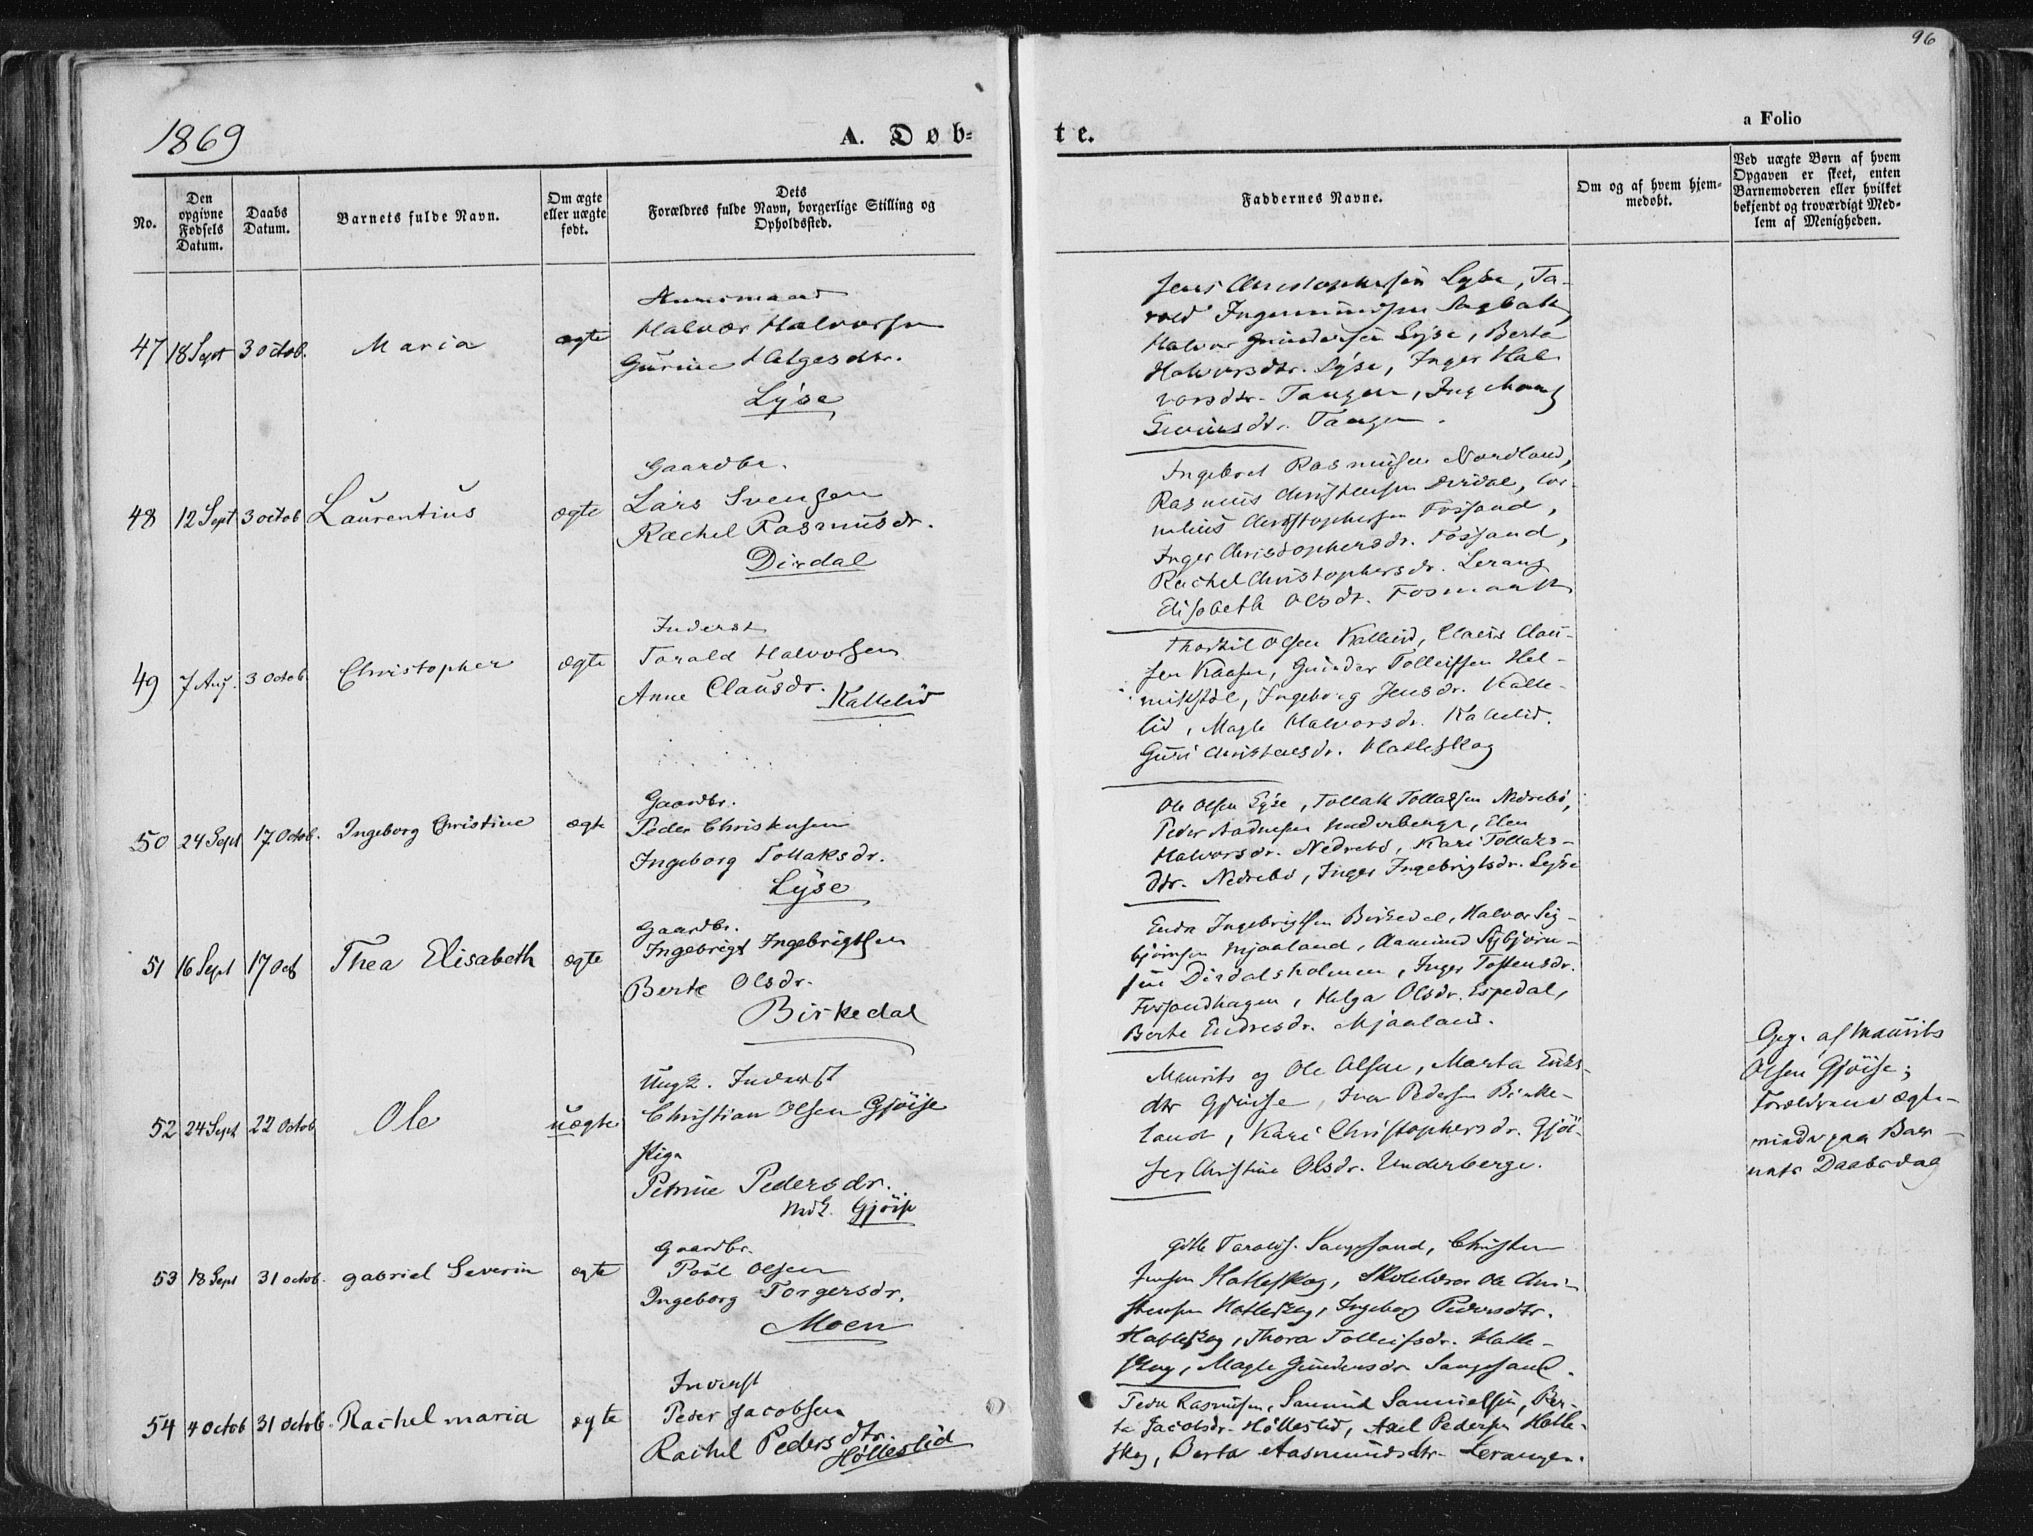 96
1869
A. Døb-
te.
a Folio
No.
Den opgivne Fødsels Datum.
Daabs Datum.
Barnets fulde Navn.
Om ægte eller uægte født.
Dets Forældres fulde Navn, borgerlige Stilling og Opholdssted.
Faddernes Navne.
Om og af hvem hjemmedøbt.
Ved uægte Børn af hvem Opgaven er skeet, enten Barnemoderen eller hvilket bekjendt og troværdigt Medlem af Menigheden.
47 18 Sept 3 Octob. Maria ægte
Huusmand
Halvor Halvorsen
Gurine Helgesdtr.
Lyse
Jens Christophersen Lyse, Ta-
rald Ingemundsen Sagbak,
Halvor Gundersen Lyse, Berta
Halvorsdtr. Lyse, Inger Hal-
vorsdtr. Tangen, Ingeborg
Tangen.
48 12 Sept 3 Octob Laurentius ægte
Gaardbr.
Lars Svensen
Rachel Rasmusdr.
Dirdal
Ingebret Rasmusen Nordland,
Rasmus Christensen Dirdal, Cor-
nelius Christophersen Fosand,
Inger Christophersdr. Fosand,
Rachel Christophersdr. Lerang
Elisabeth Olsdr. Fosmark
49 7 Aug. 3 Octob. Christopher ægte
Inderst
Tarald Halvorsen
Anne Clausdr. Kallelid
Thorkil Olsen Kallelid, Claus Clau-
sen Kaasen, Gunder Tolleifsen Hel-
mikstøl, Ingeborg Jensdr. Kalle-
lid, Magle Halvorsdr. Kallelid.
Guri Christensdr. Hatleskog
50 24 Sept 17 Octob. Ingeborg Christine ægte
Gaardbr.
Peder Christensen
Ingeborg Tollaksdr.
Lyse
Ole Olsen Lyse, Tollak Tollaksen Nedrebø,
Peder Aadnesen Underberge, Elen
Halvorsdr. Nedrebø, Kari Tollaks-
dtr. Nedrebø, Inger Ingebrigtsdr. Lyse
51 16 Sept 17 Oct Thea Elisabeth ægte
Gaardbr.
Ingebrigt Ingebrigtsen
Berte Olsdr.
Birkedal
Endre Ingebrigtsen Birkedal, Halvor Sig-
bjørnsen Mjaaland, Aamund Sigbjørn-
sen Dirdalsholmen, Inger Tostensdr.
Fosandhagen, Helga Olsdr. Espedal,
Berte Endresdr. Mjaaland.
52 24 Sept 22 Octob Ole uægte
Ungk. Inderst
Christian Olsen Gjøise
Pige
Petrine Pedersdr.
Gjøise
Maurits og Ole Olsen, Marta Eriks-
dtr Gjøise, Ivar Pedersen Birke-
land, Kari Christophersdr. Gjøi-
se, Christine Olsdr. Underberge.
Opg. af Maurits
Olsen Gjøise;
Forældrene ægte-
viede paa Bar-
nets Daabsdag
53 18 Sept 31 Octob. Gabriel Severin ægte
Gaardbr.
Poul Olsen
Ingeborg Torgersdr.
Moen
Gitle Taralds. Songesand, Christen
Jensen Hatleskog, Skolelærer Ole Chri-
stensen Hatleskog, Ingeborg Pedersdtr.
Hatleskog, Thora Tolleifsdr. Hatle-
skog, Magle Gundersdr Songesand.
54 4 Octob 31 Octob. Rachel Maria ægte
Inderst
Peder Jacobsen
Rachel Pedersdtr.
Høllesliid
Peder Rasmusen, Samund Samuelsen, Ber-
ta Jacobsdr. Høllesliid, Axel Pedersen Hatle-
skog, Berta Aasmundsdtr Lerangen.